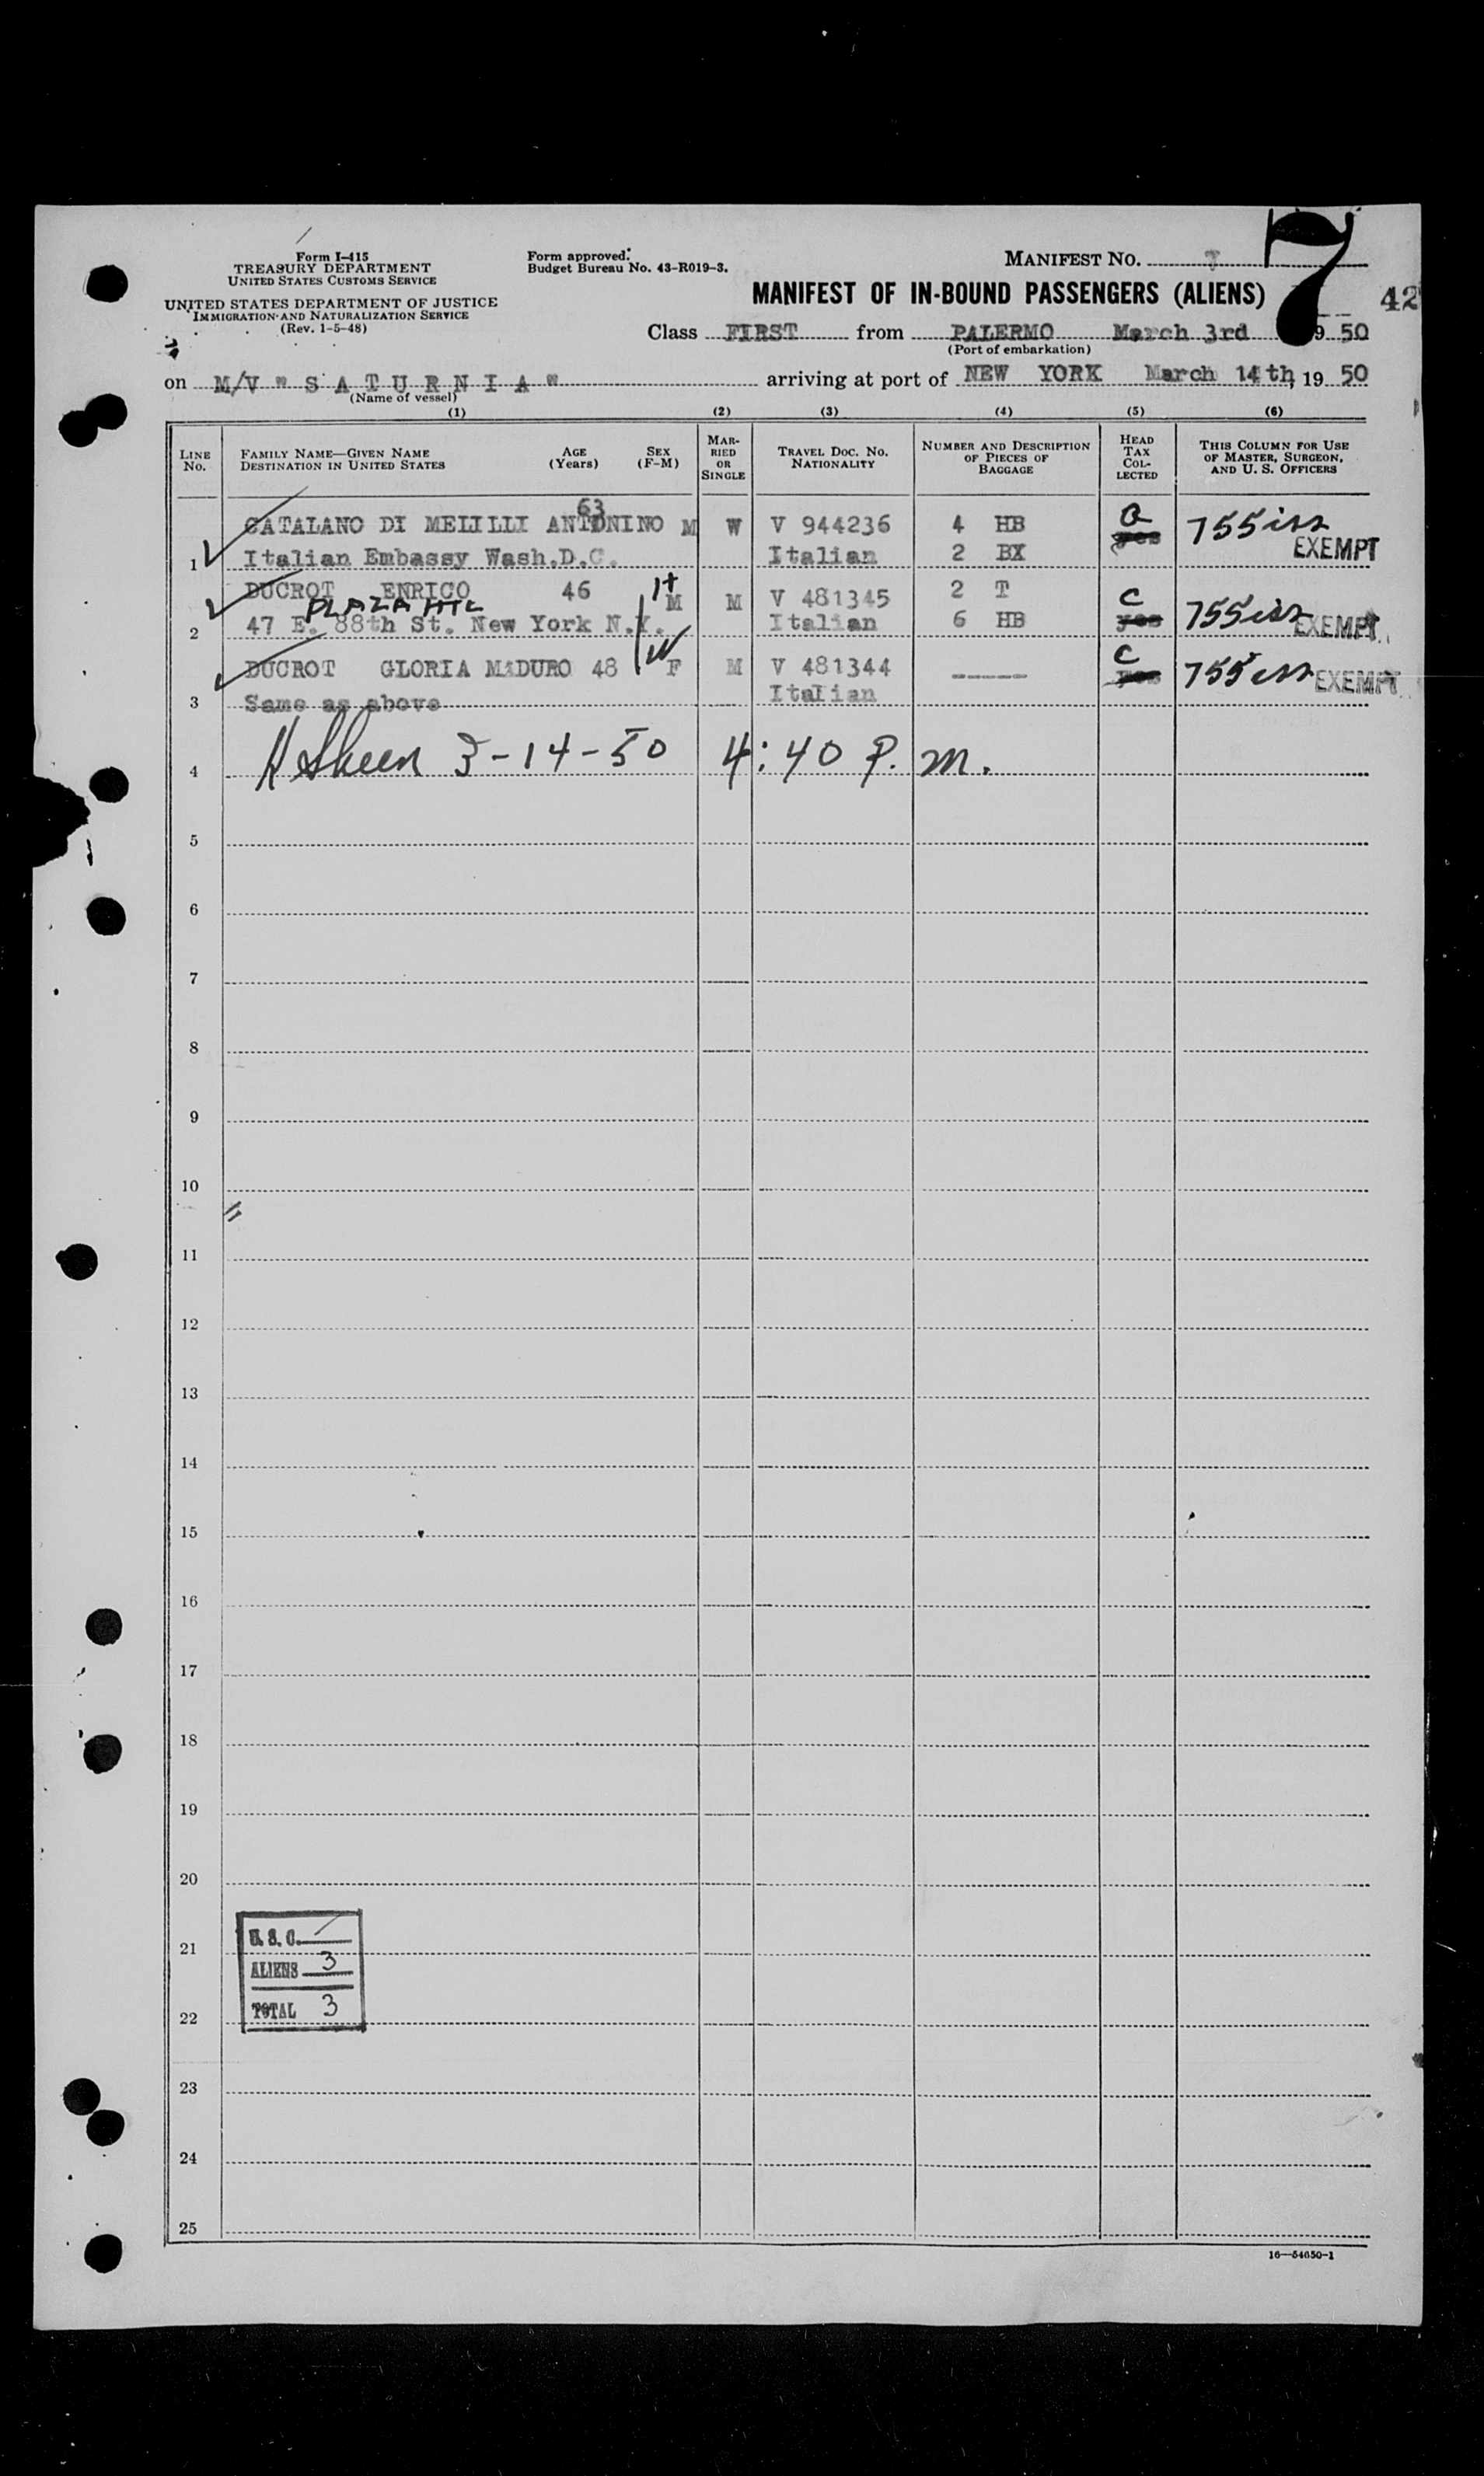 Form I-415
TREASURY DEPARTMENT
UNITED STATES CUSTOMS SERVICE
UNITED STATES DEPARTMENT OF JUSTICE
IMMIGRATION AND NATURALIZATION SERVICE
(Rev. 1-5-48)
Form approved.
Budget Bureau No. 43-R019-3.
MANIFEST NO. 7
MANIFEST OF IN-BOUND PASSENGERS (ALIENS)
42
Class FIRST from PALERMO March 3rd 19 50
(Port of embarkation)
on M/V " S A T U R N I A " arriving at port of NEW YORK March 14th, 19 50
(Name of vessel)
(1) (2) (3) (4) (5) (6)
LINE No. FAMILY NAME—GIVEN NAME DESTINATION IN UNITED STATES AGE (Years) SEX (F-M) MARRIED OR SINGLE TRAVEL DOC. NO. NATIONALITY NUMBER AND DESCRIPTION OF PIECES OF BAGGAGE HEAD TAX COLLECTED THIS COLUMN FOR USE OF MASTER, SURGEON, AND U. S. OFFICERS
63
CATALANO DI MELILLI ANTONINO M W V 944236 4 HB 755 iss
1 Italian Embassy Wash.D.C. Italian 2 BX yes EXEMPT
DUCROT ENRICO 46 It M M V 481345 2 T C 755 iss
PLAZA HTL
2 47 E. 88th St. New York N.Y. Italian 6 HB yes EXEMPT
DUCROT GLORIA MADURO 48 F M V 481344 ------ C yes 755 iss EXEMPT
3 Same as above Italian
4 3-14-50 4:40 P.m.
5
6
7
8
9
10
11
12
13
14
15
16
17
18
19
20
U. S. C.
21
ALIENS 3
TOTAL 3
22
23
24
25
16—54650-1